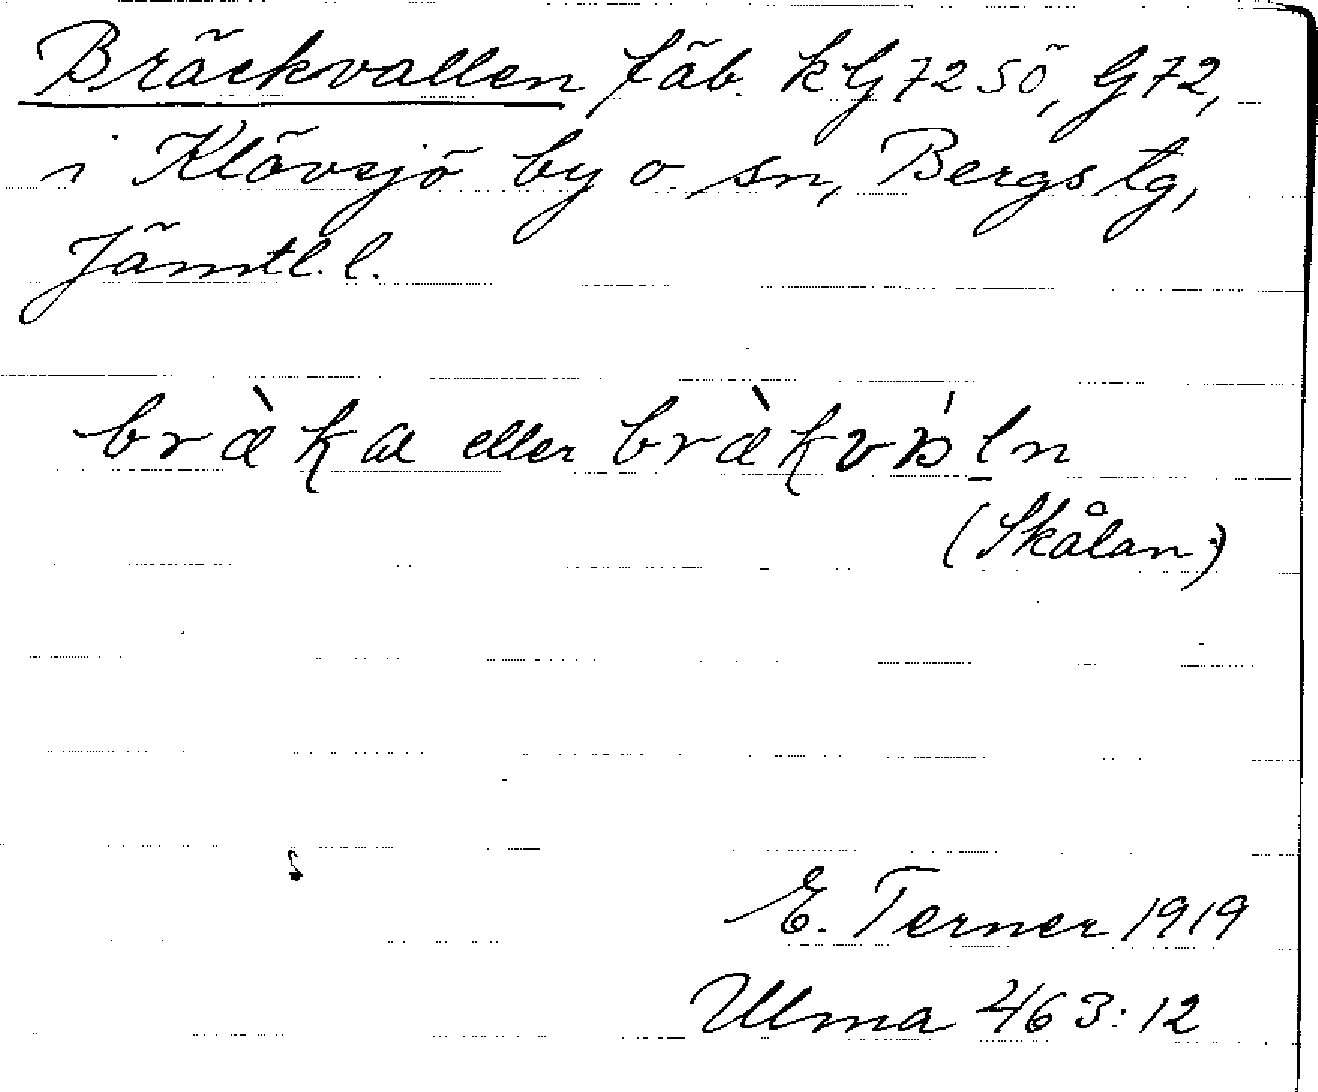 Bräckvallen fäb. kG72SÖ, G72,
i Klövsjö by o sn, Bergs tg,
Jämtl. l.
bræ̀ka eller bræ̀kvɒ́ln
(Skålan)
E. Terner 1919
Ulma 463:12